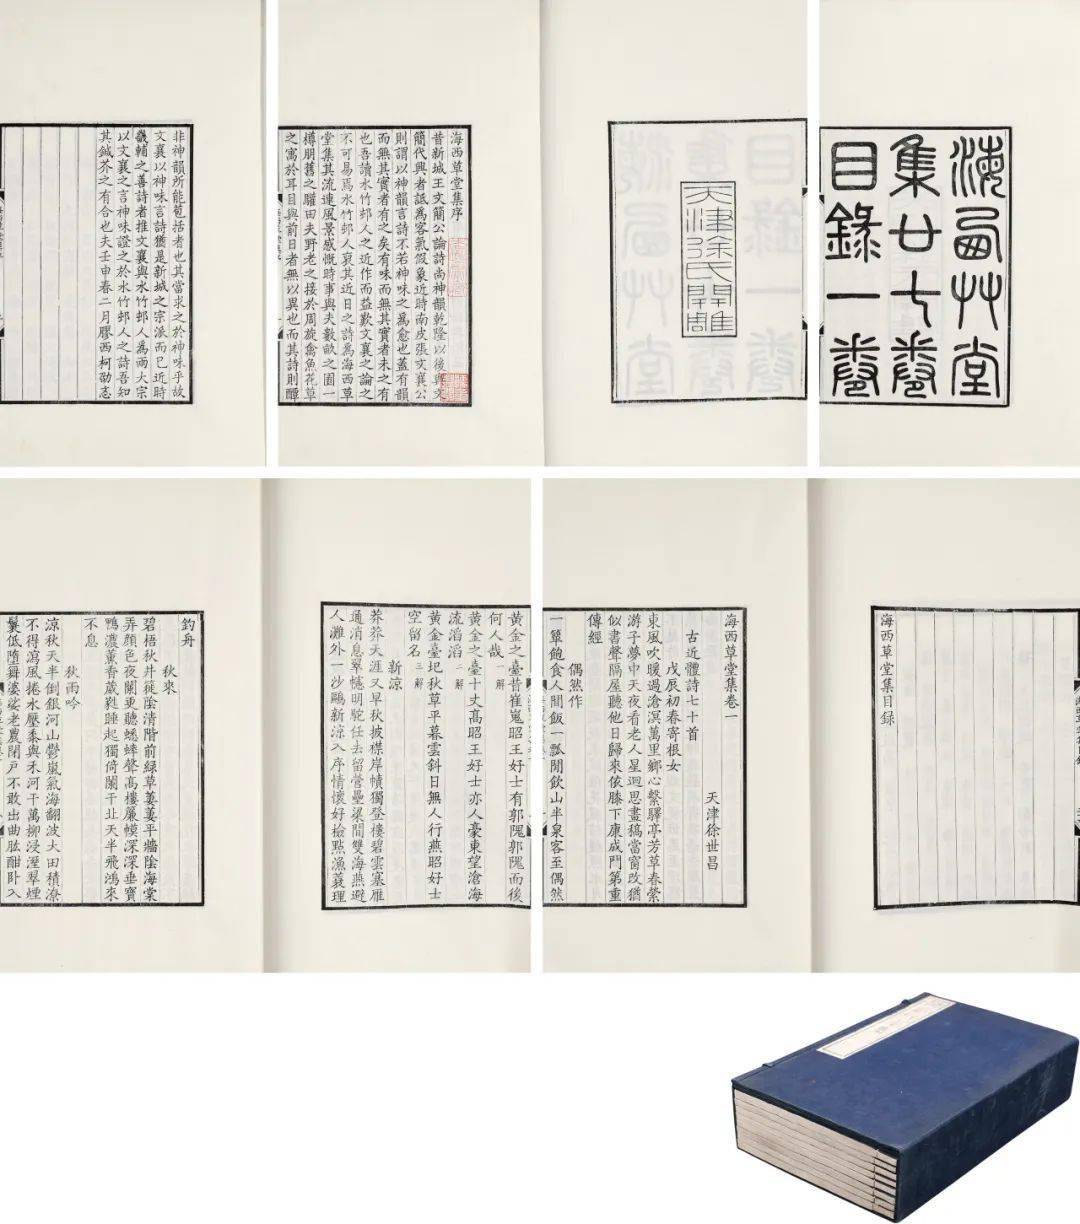 海西草堂
集廿七卷
目錄一卷
天津徐氏開雕
海西草堂集序
昔新城王文簡公論詩尚神韻乾隆以後與文
簡代興者詆為客氣假象近時南皮張文襄公
則謂以神韻言詩不若神味之為愈也蓋有韻
而無其實者有之矣有味而無其實者未之有
也吾讀水竹邨人之近作而益歎文襄之論之
不可易焉水竹邨人裒其近日之詩為海西草
堂集其流連風景感慨時事與夫數畝之園一
樽朋舊之躍田夫野老之接於周旋禽魚花草
之寓於耳目與前日者無以異也而其詩則醰
非神韻所能苞括者也其當求之於神味乎故
文襄以神味言詩猶是新城之宗派而已近時
畿輔之善詩者推文襄與水竹邨人為兩大宗
以文襄之言神味證之於水竹邨人之詩吾知
其鍼芥之有合也夫壬申春二月膠西柯劭忞
海西草堂集目錄
海西草堂集卷一
天津徐世昌
古近體詩七十首
戊辰初春寄根女
東風吹暖過滄溟萬里鄉心繫驛亭芳草春縈
游子夢中天夜看老人星迴思畫稿當窗改猶
似書聲隔屋聽他日歸來依膝下康成門第重
傳經
偶然作
一簞飽食人間飯一瓢閒飲山半泉客至偶然
黃金之臺昔崔嵬昭王好士有郭隗郭隗而後
何人哉一解
黃金之臺十丈高昭王好士亦人豪東望滄海
流滔滔二解
黃金臺圮秋草平暮雲斜日無人行燕昭好士
空留名三解
新涼
莽莽天涯又早秋披襟岸幘獨登樓碧雲塞雁
通消息翠幰明駝任去留營壘梁間雙海燕避
人灘外一沙鷗新涼入序情懷好檢點漁蓑理
釣舟
秋來
碧梧秋井篴陰清階前綠草萋萋平牆陰海棠
弄顏色夜闌更聽蟋蟀聲高樓簾幙深深垂寶
鴨濃薰香葳㽔睡起獨倚闌干北天半飛鴻來
不息
秋雨吟
涼秋天半倒銀河山鬱嵐氣海翻波大田積潦
不得瀉風捲水壓黍與禾河干萬柳浸溼翠煙
鬟低墮舞婆娑老農閉戶不敢出曲肱酣卧入